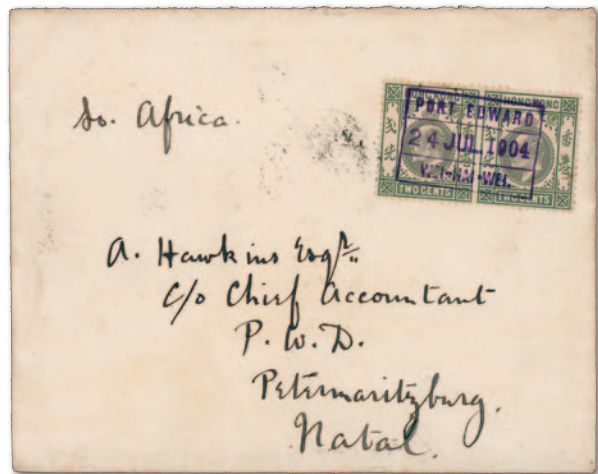 So. Africa.
HONG KONG HONG KONG
PORT EDWARD
24 JUL 1904
WEI-HAI-WEI.
TWO CENTS TWO CENTS
香港
A. Hawkins Esqr.
C/o Chief Accountant
P. W. D.
Petermaritzburg.
Natal.